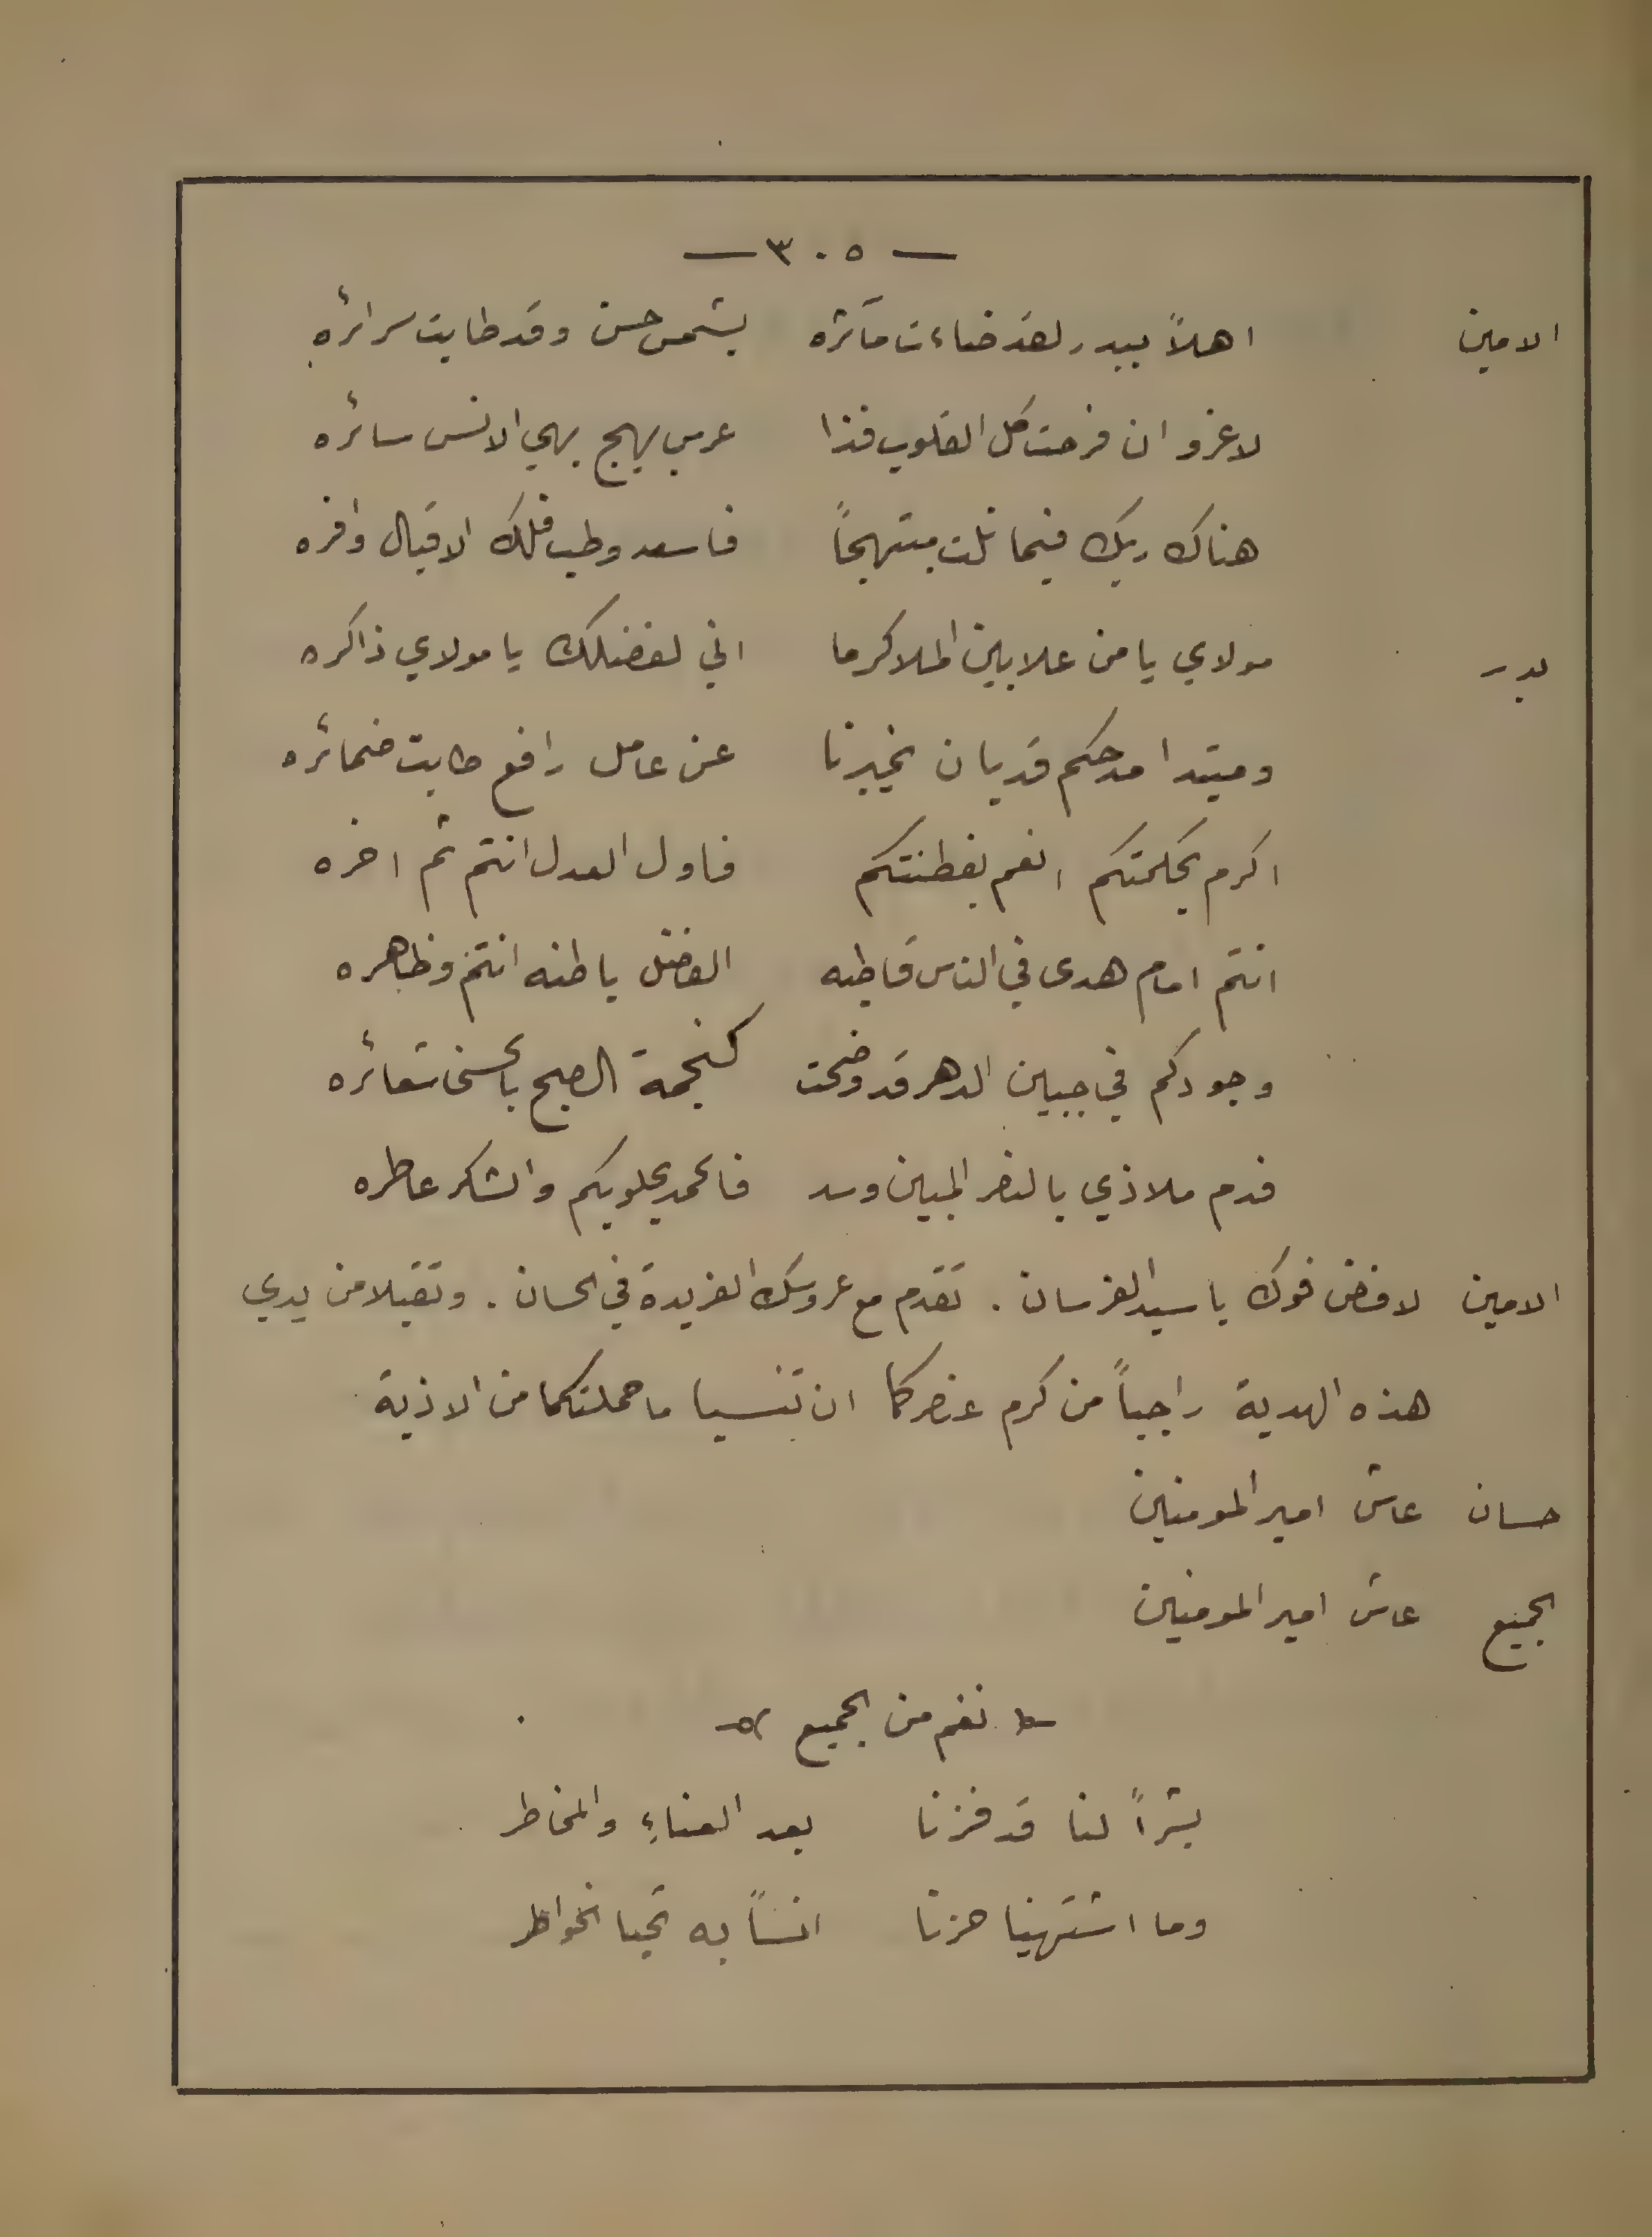 — ٣٠٥ —
الامين اهلاً ببدر لقد ضاءت مآثره بشمس حسن وقد طابت سرائره
لا غرو ان فرحت كل القلوب فذا عرس بهيج بهي الانس سائره
هناك ربك فيما نلت مبتهجاً فاسعد وطب فلك الاقبال وافره
بدر مولاي يا من علا بين الملا كرما اني لفضلك يا مولاي ذاكره
ومبتدا مدحكم قد بان يخبرنا عن عامل رافع طابت ضمائره
اكرم بحكمتكم انعم بفطنتكم فاول العدل انتم ثم اخره
انتم امام هدى في الناس قاطبه الفضل باطنه انتم وظاهره
وجودكم في جبين الدهر قد وضحت كنجمة الصبح بالحسنى شعائره
فدم ملاذي بالنصر المبين وسد فالحمد يحلو بكم والشكر عاطره
الامين لا فض فوك يا سيد الفرسان . تقدم مع عروسك الفريدة في الحسان . وتقبلا من يدي
هذه الهدية راجباً من كرم عنصركما ان تنسيا ما حملتكما من الاذية
حسان عاش امير المومنين
الجميع عاش امير المومنين
نغم من الجميع
بشراً لنا قد فزنا بعد العناءِ والمخاطر
وما اشتهينا حزنا انساً به تحيا الخواطر